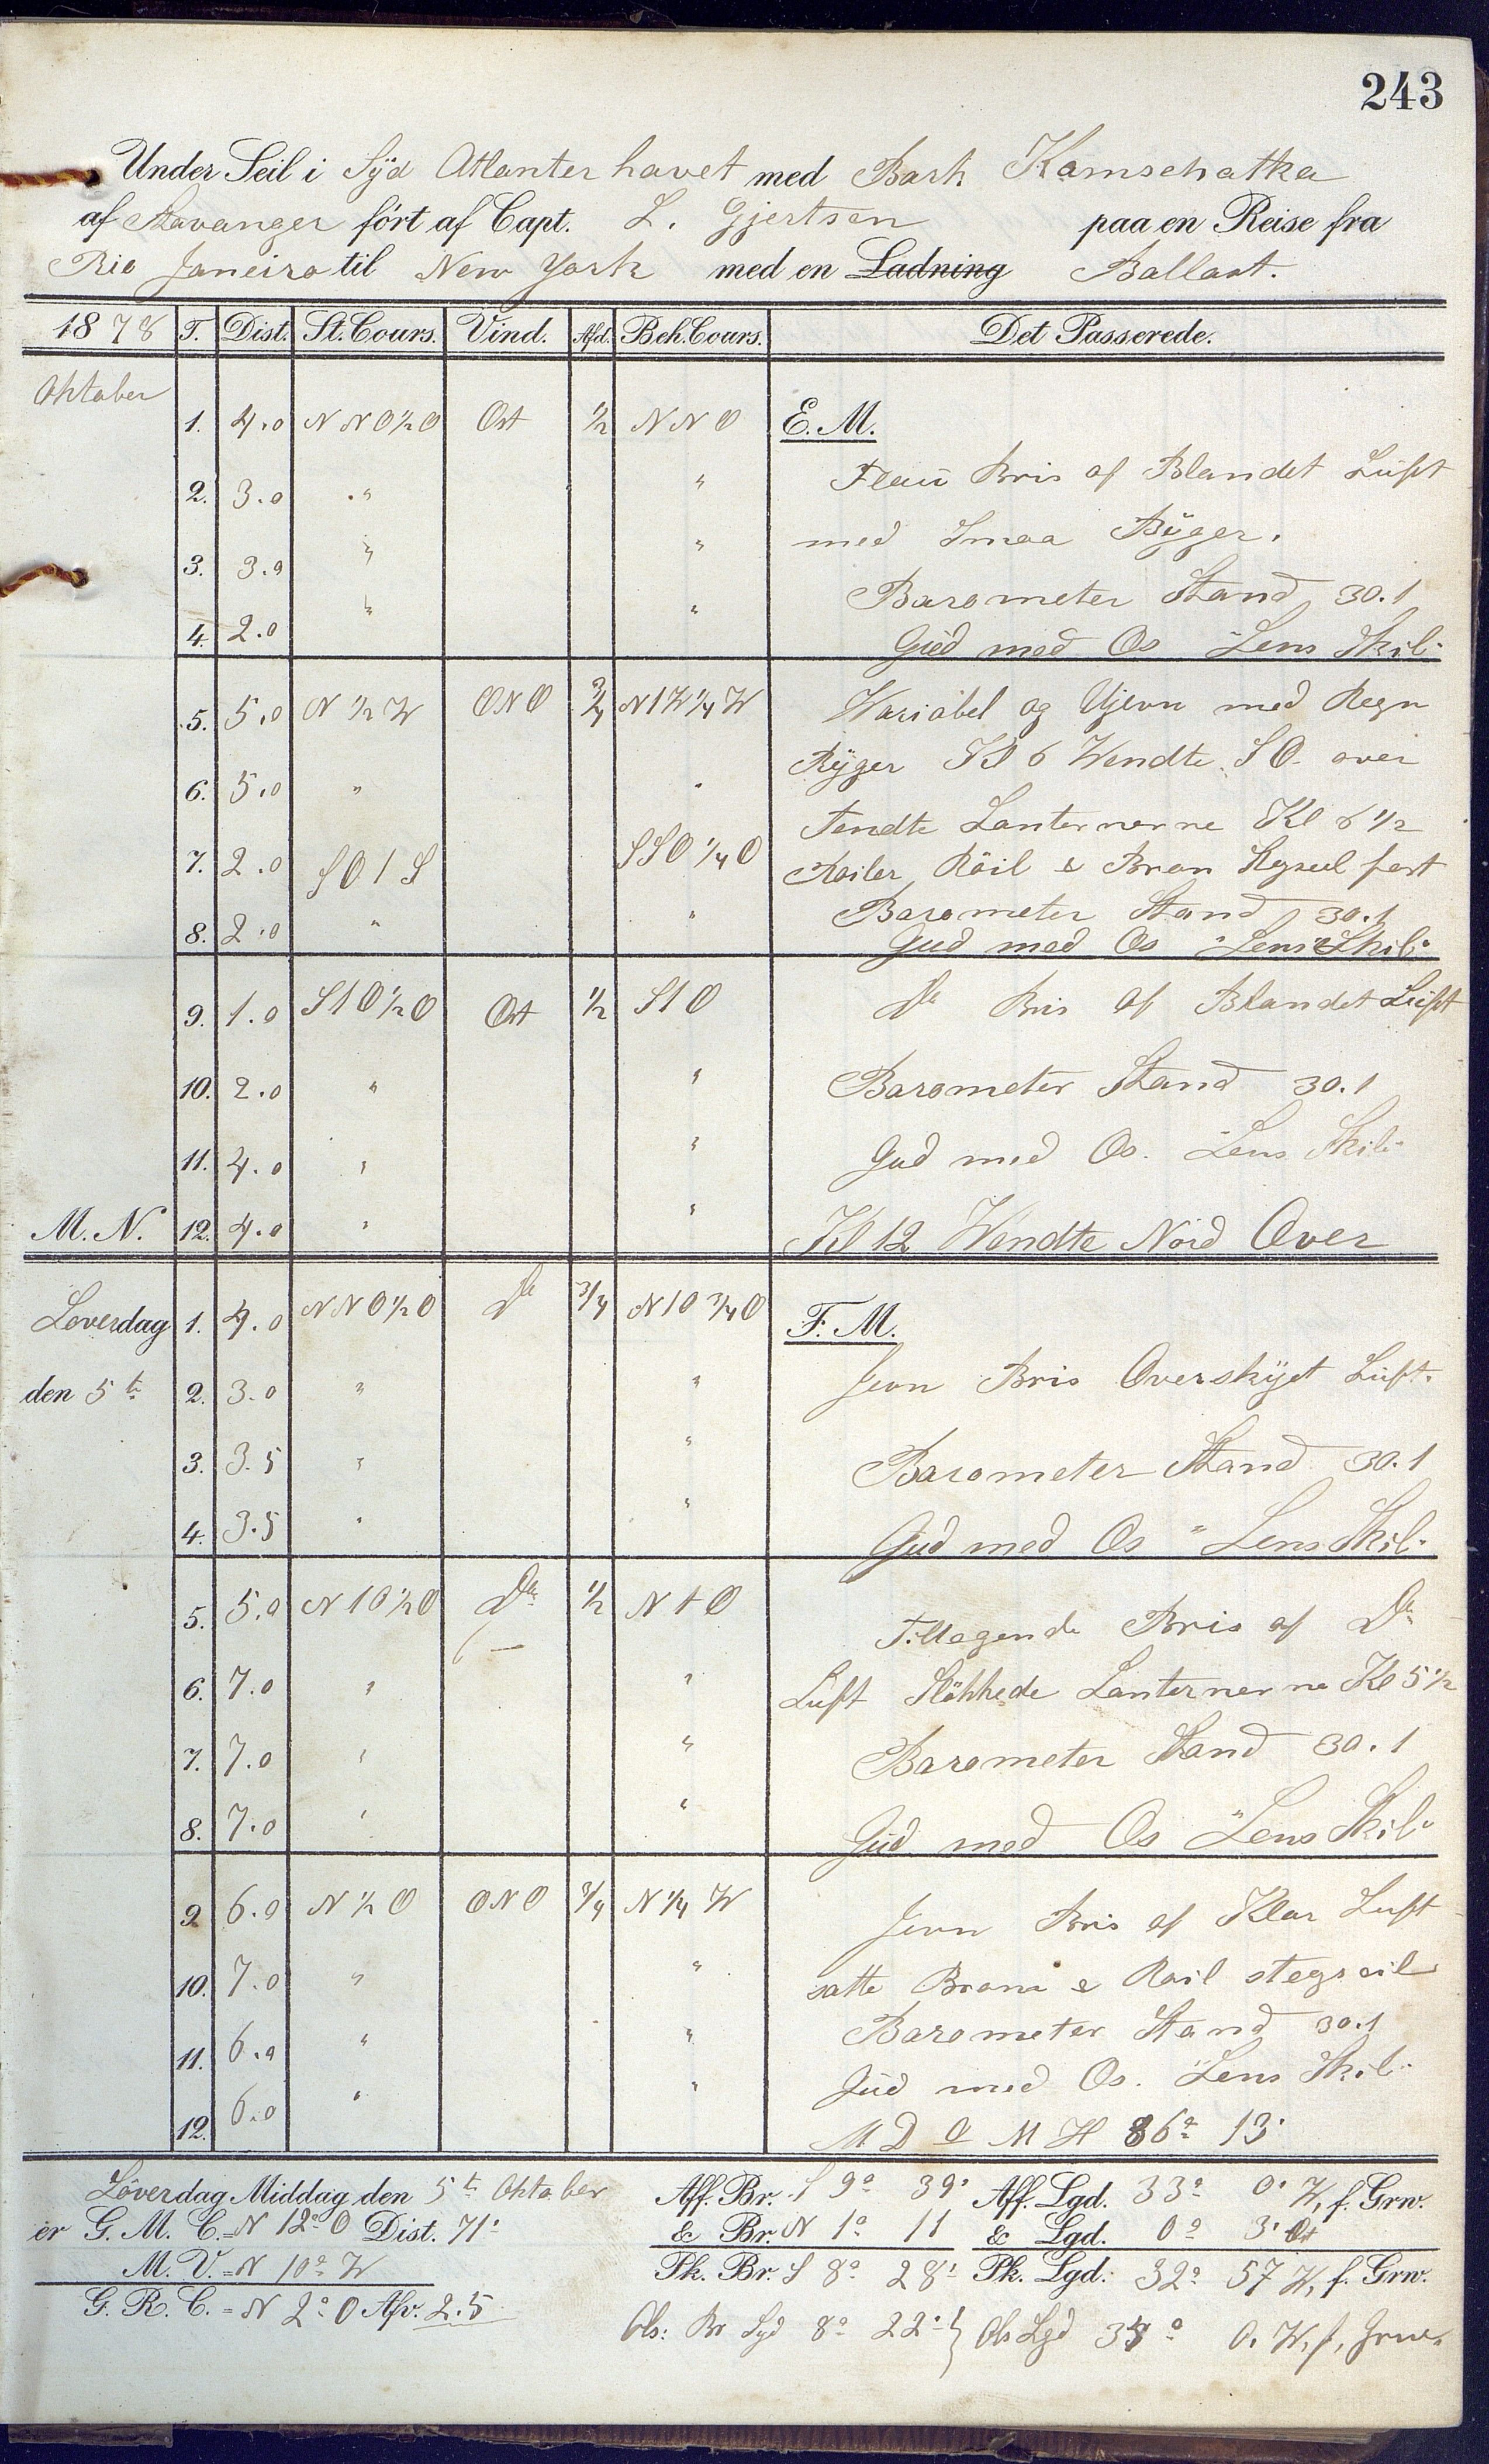 243
Under Seil i Syd Atlanter havet med Bark Kamschatka
af Stavanger fört af Capt. L. Gjertsen paa en Reise fra
Rio Janeiro til New York med en Ladning Ballast.
1878 T. Dist. St. Cours. Vind. Afd. Beh. Cours. Det Passerede.
Oktober
1. 4.0 N N O ½ O Ost ½ N N O E. M.
2. 3.0 " " Flau Bris af Blandet Luft
3. 3.0 " " med Smaa Byger.
Barometer Stand 30.1
4. 2.0 " " Gud med Os "Lens Skib"
5. 5.0 N ½ W ONO ¾ N 1 W ¼ W Wariabel og Ujevn med Regn
6. 5.0 " " Byger Kl 6 Wendte S O. over
Tendte Lanternerne Kl 6 ½
7. 2.0 S O 1 S S S O ¼ O Roiler, Röil & Bram Stgseil fast
8. 2.0 " " Barometer Stand 30.1
Gud med Os "Lens Skib"
9. 1.0 S 1 O ½ O Ost ½ S 1 O Do Bris af Blandet Luft
10. 2.0 " " Barometer Stand 30.1
11. 4.0 " " Gud med Os. "Lens Skib"
M. N. 12. 4.0 " " Kl 12 Wendte Nord Over
Loverdag 1. 4.0 N N O ½ O Do ¾ N 1 O ¾ O F. M.
den 5te 2. 3.0 " " Jevn Bris Overskyet Luft.
3. 3.5 " " Barometer Stand 30.1
4. 3.5 " " Gud med Os "Lens Skib"
5. 5.0 N 1 O ½ O Do ½ N 1 O Tiltagende Bris af Do
6. 7.0 " " Luft Slökkede Lanternerne Kl 5 ½
7. 7.0 " " Barometer Stand 30.1
8. 7.0 " " Gud med Os "Lens Skib"
9. 6.0 N ½ O ONO ¾ N ¼ W Jevn Bris af Klar Luft
10. 7.0 " " satte Bram & Roil stegseil
11. 6.0 " " Barometer Stand 30.1
Gud med Os. "Lens Skib"
12. 6.0 " " M D O M H 86° 13'
Löverdag Middag den 5te Oktober Aff. Br. S 9° 39' Aff. Lgd. 33° 0' W. f. Grw.
er G. M. C. = N 12° O Dist. 71' & Br. N 1° 11 & Lgd. 0° 3' Ost
M. V. = N 10° W Pk. Br. S 8° 28' Pk. Lgd.: 32° 57 W. f. Grw.
G. R. C. = N 2° O Afv. 2.5
Obs: Br Syd 8° 22' Obs Lgd 0. W. f. Grw.